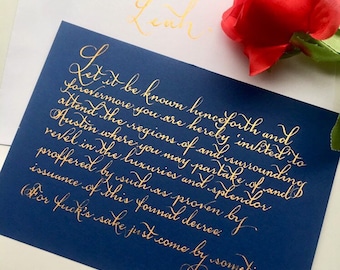 Leah.
Let it be known henceforth and
forevermore you are hereby invited to
attent the regions of and surrounding
Austin where you may partake of and
revel in the luxuries and splendor
proffered by such as proven by
issuance of this formal decree.
(For fuck's sake just come by